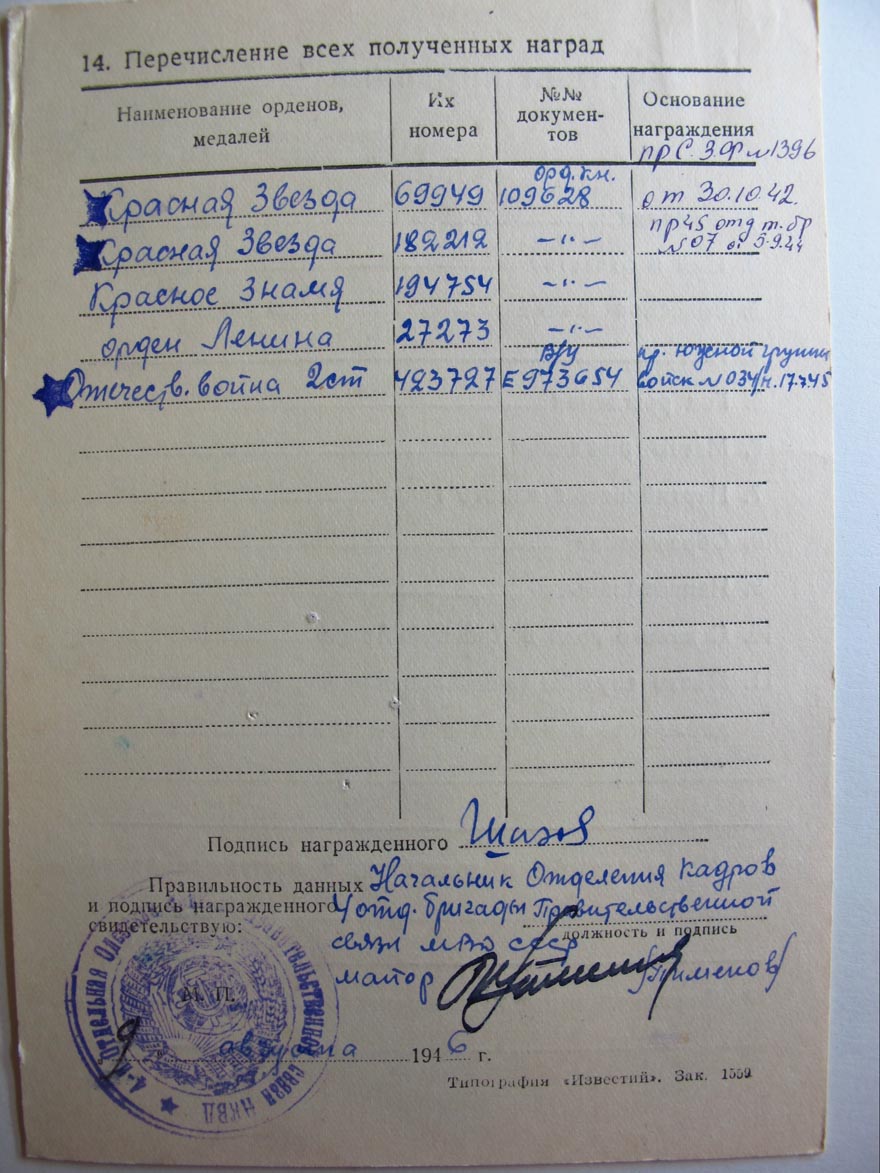 14. Перечисление всех полученных наград
Наименование орденов, медалей
Их номера
№№ документов
Основание награждения
пр С.З.Ф №1396
орд. кн.
Красная Звезда 69949 109628 от 30.10.42.
пр 45 отд т. бр
Красная Звезда 182212 —〃— №07 от 5.9.44
Красное Знамя 194754 —〃—
орден Ленина 27273 —〃—
В/У пр. южной группы
Отечеств. война 2 ст 423727 Е 973654 войск №034/н. 17.7.45
Подпись награжденного
Правильность данных Начальник Отделения Кадров
и подпись награжденного 4 отд. бригады Правительственной
свидетельствую: должность и подпись
связи МВД СССР
М. П. майор /Пименов/
9 августа 1946 г.
Типография «Известий». Зак. 1559